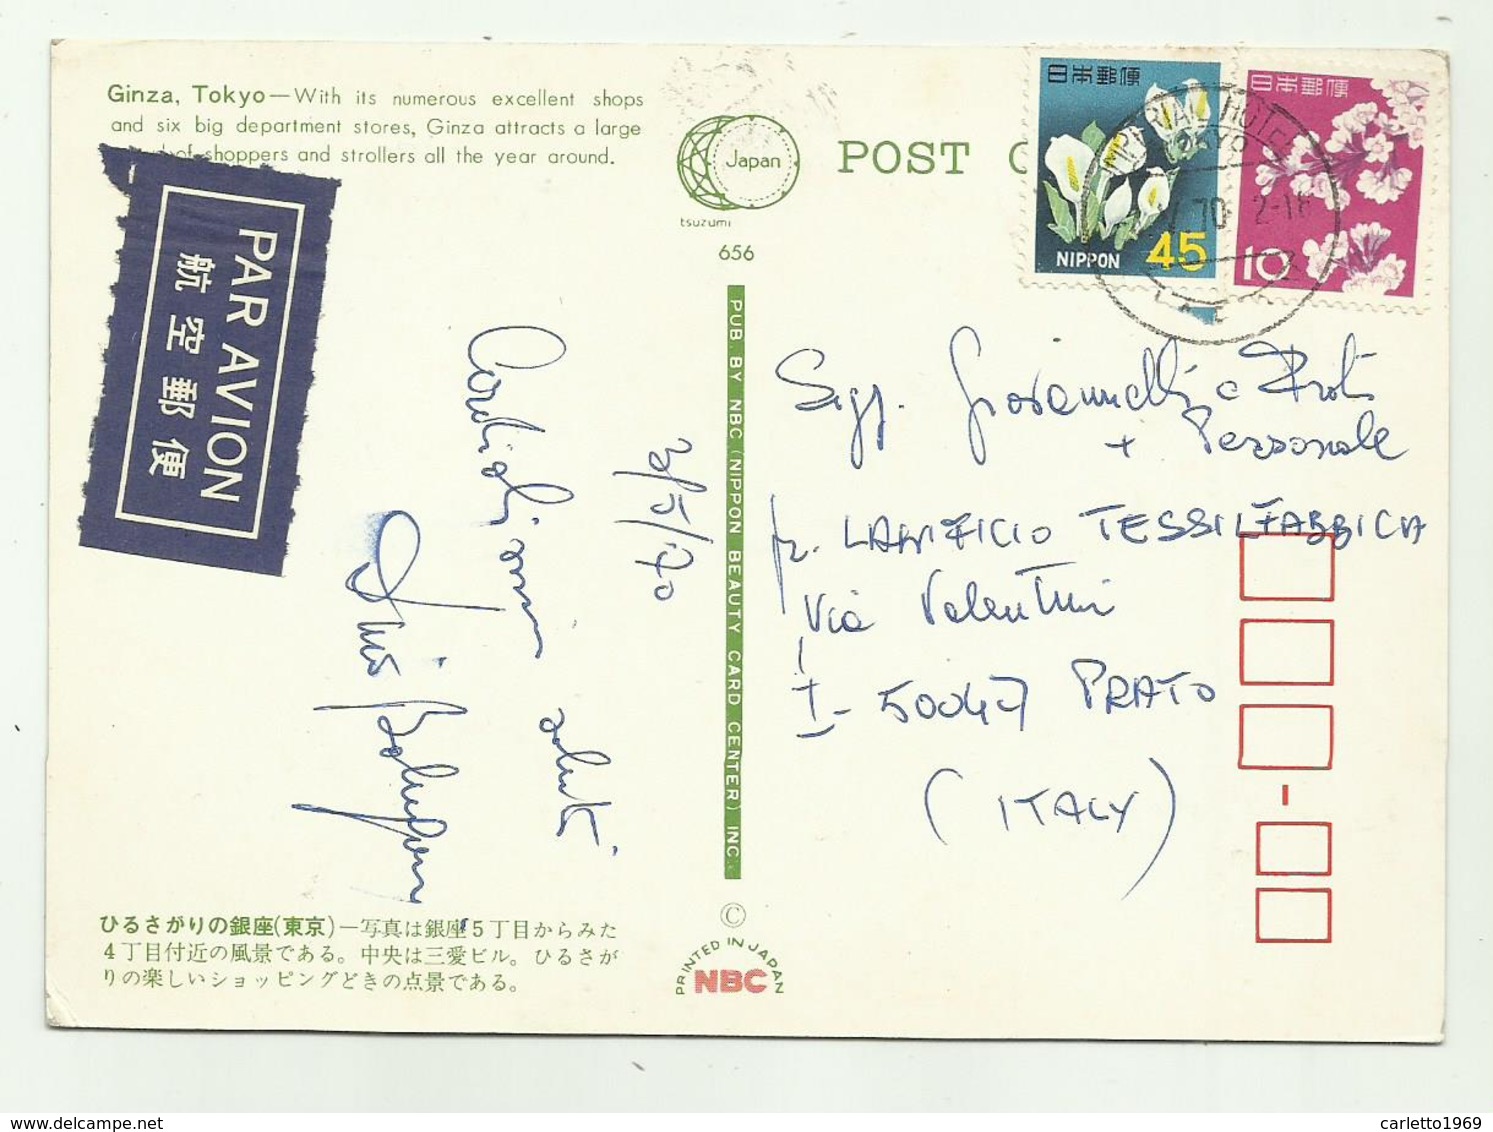 Ginza, Tokyo—With its numerous excellent shops
and six big department stores, Ginza attracts a large
of shoppers and strollers all the year around.
Japan
tsuzumi
656
POST C
日本郵便
NIPPON 45
日本郵便
10
IMPERIAL HOTEL
TOKYO
70 2-18
PAR AVION
航空郵便
3/5/70
Cordialissimi saluti
PUB. BY NBC (NIPPON BEAUTY CARD CENTER) INC.
Sigg. Giovannelli e
+ Personale
LANIFICIO TESSILFABBRICA
Via Valentini
I-50047 PRATO
(ITALY)
ひるさがりの銀座(東京)—写真は銀座5丁目からみた
4丁目付近の風景である。中央は三愛ビル。ひるさが
りの楽しいショッピングどきの点景である。
©
PRINTED IN JAPAN
NBC
delcampe.net
carletto1969